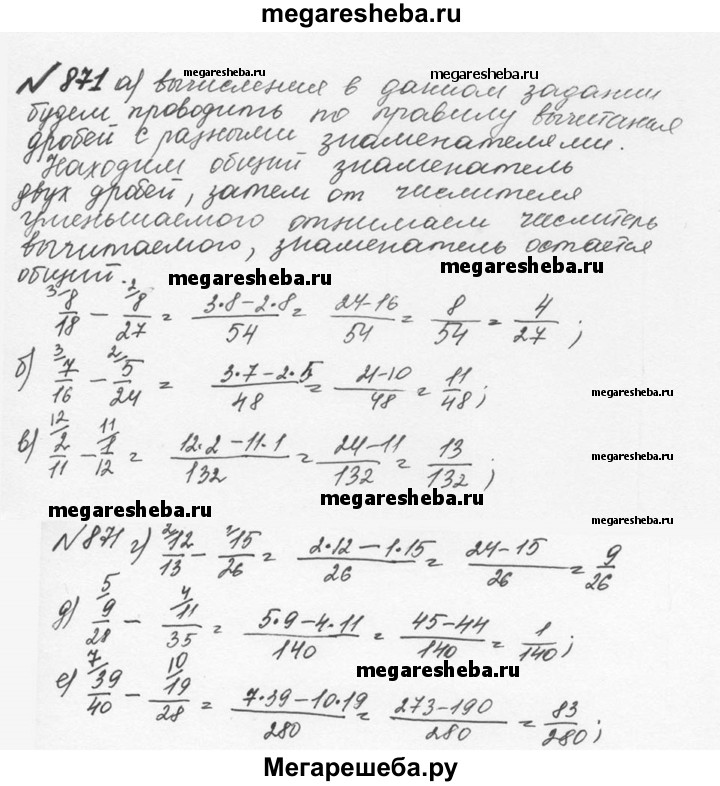 megaresheba.ru
№ 871 а) вычисления в данном задании
megaresheba.ru megaresheba.ru
будем проводить по правилу вычитания
дробей с разными знаменателями.
Находим общий знаменатель
двух дробей, затем от числителя
уменьшаемого отнимаем числитель
вычитаемого, знаменатель остается
общий.
megaresheba.ru megaresheba.ru
3/ 8/18 - 2/ 8/27 = (3·8-2·8)/54 = (24-16)/54 = 8/54 = 4/27 ;
б) 3/ 7/16 - 2/ 5/24 = (3·7-2·5)/48 = (21-10)/48 = 11/48 ;
megaresheba.ru
в) 12/ 2/11 - 11/ 1/12 = (12·2-11·1)/132 = (24-11)/132 = 13/132 ;
megaresheba.ru
megaresheba.ru
№ 871 г) 2/ 12/13 - 1/ 15/26 = (2·12-1·15)/26 = (24-15)/26 = 9/26
д) 5/ 9/28 - 4/ 11/35 = (5·9-4·11)/140 = (45-44)/140 = 1/140 ;
megaresheba.ru
е) 7/ 39/40 - 10/ 19/28 = (7·39-10·19)/280 = (273-190)/280 = 83/280 ;
Мегарешеба.ру